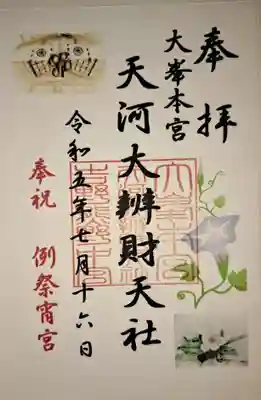 奉拝
大峯本宮
天河大辨財天社
令和五年七月十六日
奉祝 例祭宵宮